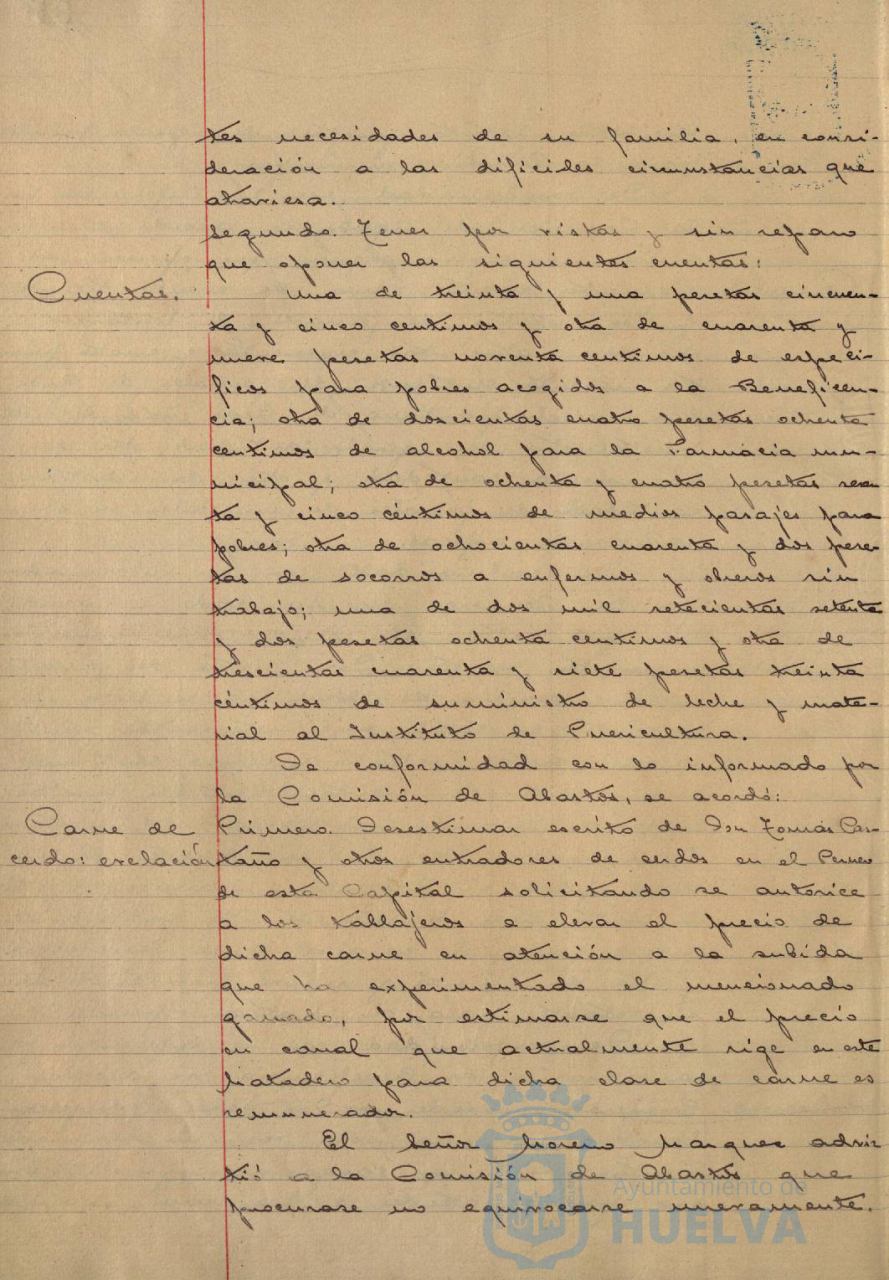 tes necesidades de su familia, en consi-
deración a las dificiles circunstancias que
atraviesa.
Segundo. Tener por vistas y sin reparo
que oponer las siguientes cuentas:
Cuentas.
Una de treinta y una pesetas cincuen-
ta y cinco centimos y otra de cuarenta y
nueve pesetas noventa centimos de especi-
ficos para pobres acogidos a la Beneficen-
cia; otra de doscientas cuatro pesetas ochenta
centimos de alcohol para la Farmacia mu-
nicipal; otra de ochenta y cuatro pesetas sesen
ta y cinco céntimos de medios pasajes para
pobres; otra de ochocientas cuarenta y dos pese-
tas de socorros a enfermos y obreros sin
trabajo; una de dos mil setecientas setenta
y dos pesetas ochenta centimos y otra de
trescientas cuarenta y siete pesetas treinta
céntimos de suministro de leche y mate-
rial al Instituto de Puericultura.
De conformidad con lo informado por
la Comisión de Abastos, se acordó:
Carne de
cerdo:
Primero. Desestimar escrito de Don Tomás Cas-
taño y otros entradores de cerdos en el
de esta Capital solicitando se autorice
a los tablajeros a elevar el precio de
dicha carne en atención a la subida
que ha experimentado el mencionado
ganado, por estimarse que el precio
en canal que actualmente rige en este
Matadero para dicha clase de carne es
remunerador.
El Señor Moreno Marquez advir
tió a la Comisión de Abastos que
procurase no equivocarse nuevamente.
Ayuntamiento de
HUELVA